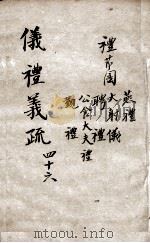 禮節圖
燕禮
大射儀
聘禮
公食大夫禮
覲禮
儀禮義疏 四十六